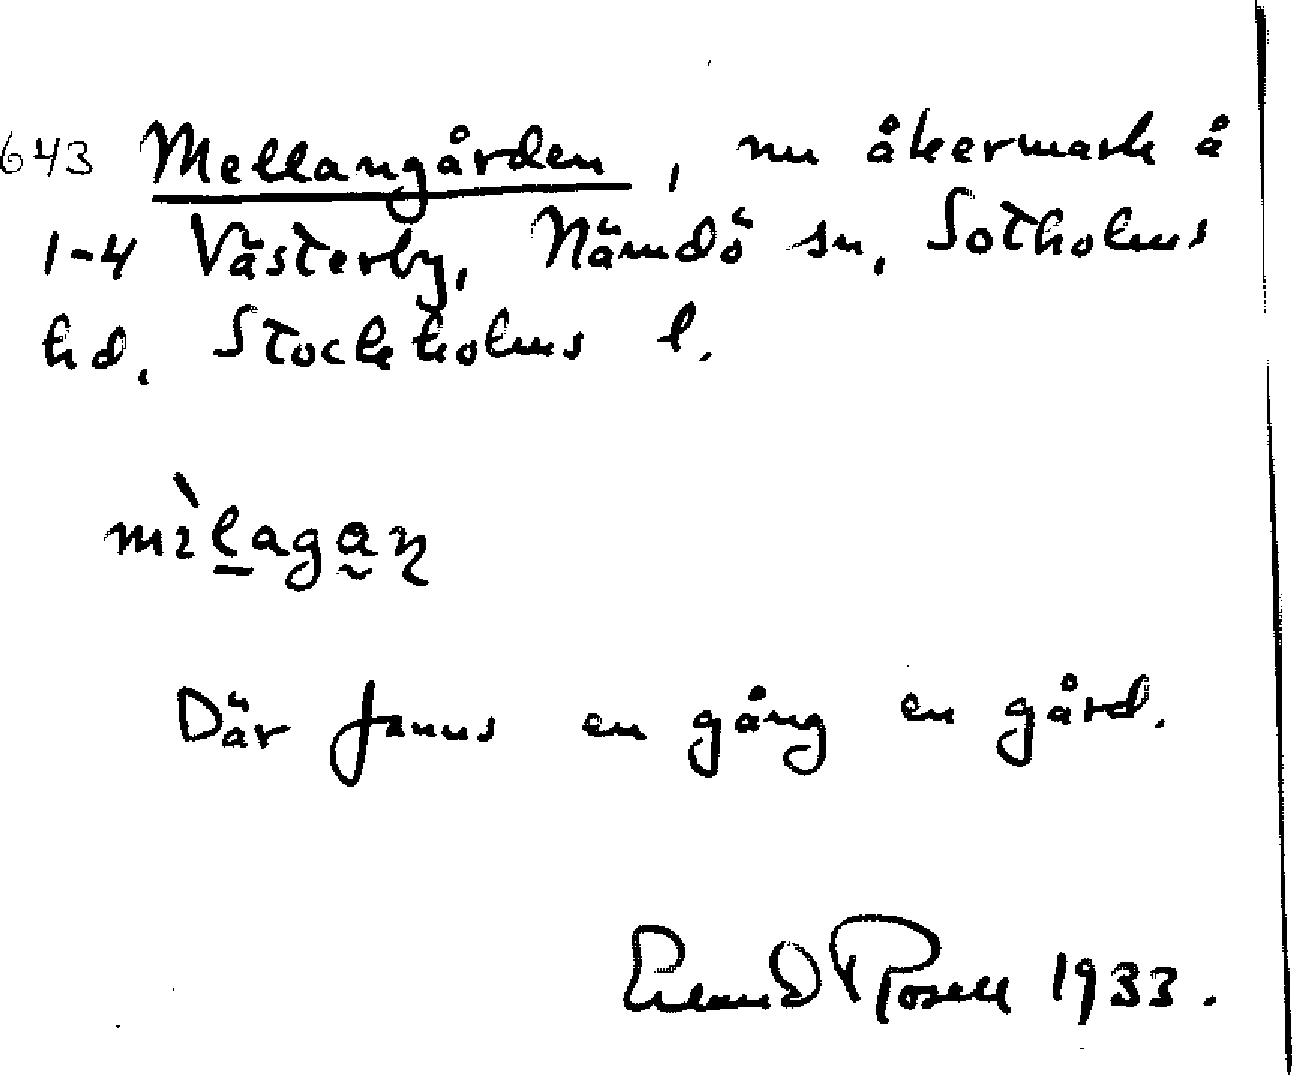 643 Mellangården, nu åkermark å
1-4 Västerby, Nämdö sn, Sotholms
hd. Stockholms l.
mìlagaɳ
Där fanns en gång en gård.
Erland Rosell 1933.